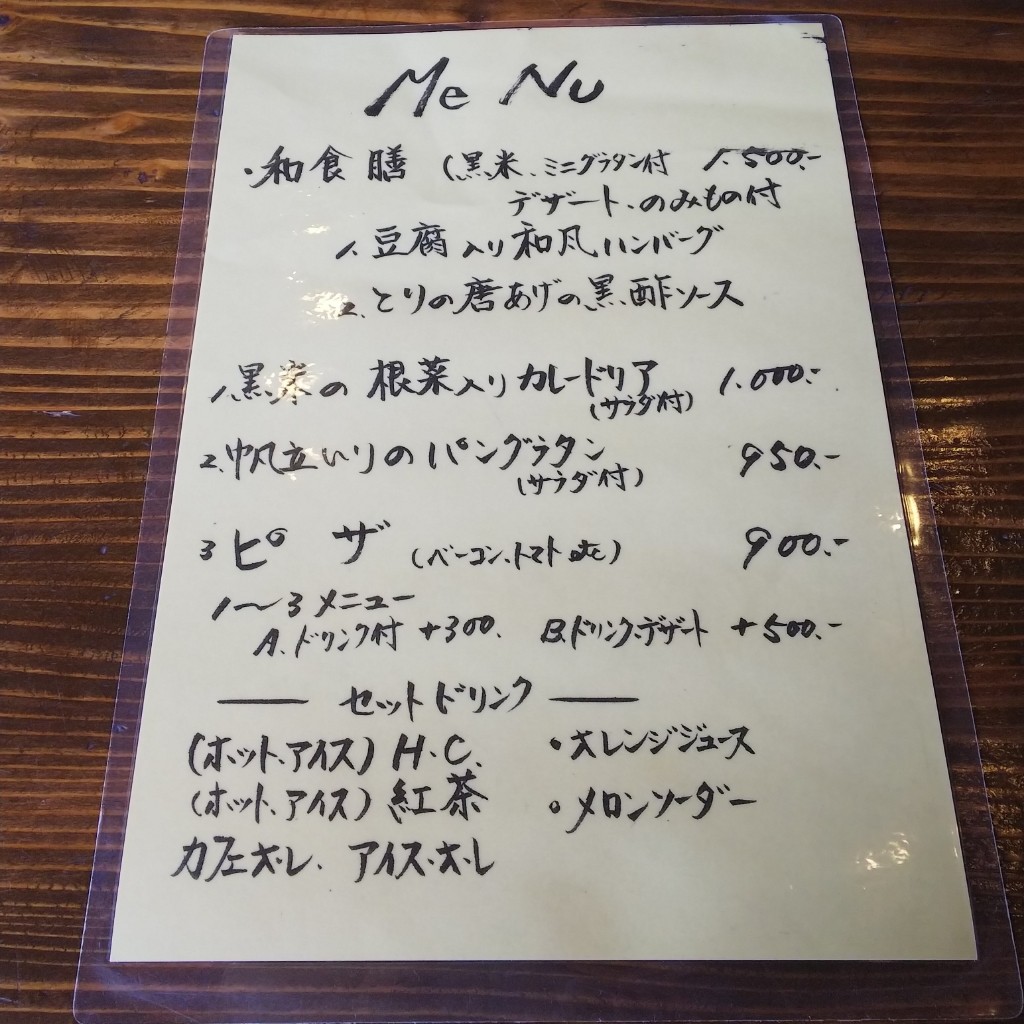 Me Nu
・和食膳 (黒米、ミニグラタン付 1.500.-
デザート、のみもの付
1. 豆腐入り和風ハンバーグ
2. とりの唐あげの黒酢ソース
1. 黒米の根菜入りカレードリア 1.000.-
(サラダ付)
2. 帆立いりのパングラタン 950.-
(サラダ付)
3 ピザ (ベーコン、トマト etc) 900.-
1〜3メニュー
A. ドリンク付 +300. B. ドリンク、デザート +500.-
— セットドリンク —
(ホット、アイス) H.C. ・オレンジジュース
(ホット、アイス) 紅茶 ・メロンソーダー
カフェオ・レ. アイス・オ・レ